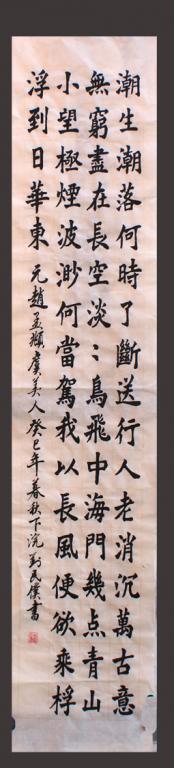 潮生潮落何時了斷送行人老消沉萬古意
無窮盡在長空淡〻鳥飛中海門幾点青山
小望極煙波渺何當駕我以長風便欲乘桴
浮到日華東 元趙孟頫虞美人癸巳年暮秋下浣民書